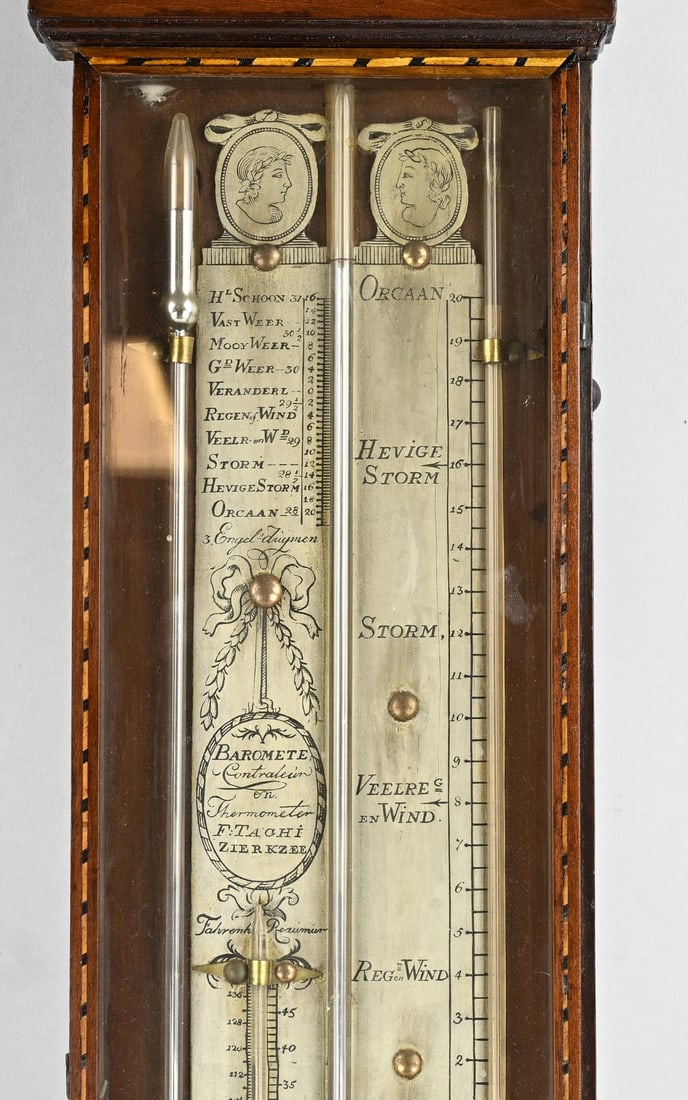 HL SCHOON 31 16
14
VAST WEER - 12
30 1/2 10
MOOY WEER – 8
6
GD WEER – 30 4
2
VERANDERL – – 0
29 1/2 2
REGEN of WIND 4
6
VEELR-en WD 29 8
10
STORM – – – – 12
28 1/2 14
HEVIGE STORM 16
18
ORCAAN 28 20
3 Engel Duymen
BAROMETE
Contraleur
en
Thermometer
F: TAGHI
ZIERKZEE
Fahrenh Reaumur
136
128
120
112
45
40
35
ORCAAN 20
19
18
17
HEVIGE
STORM 16
15
14
13
STORM, 12
11
10
9
VEELREG
EN WIND. 8
7
6
5
REG en WIND 4
3
2